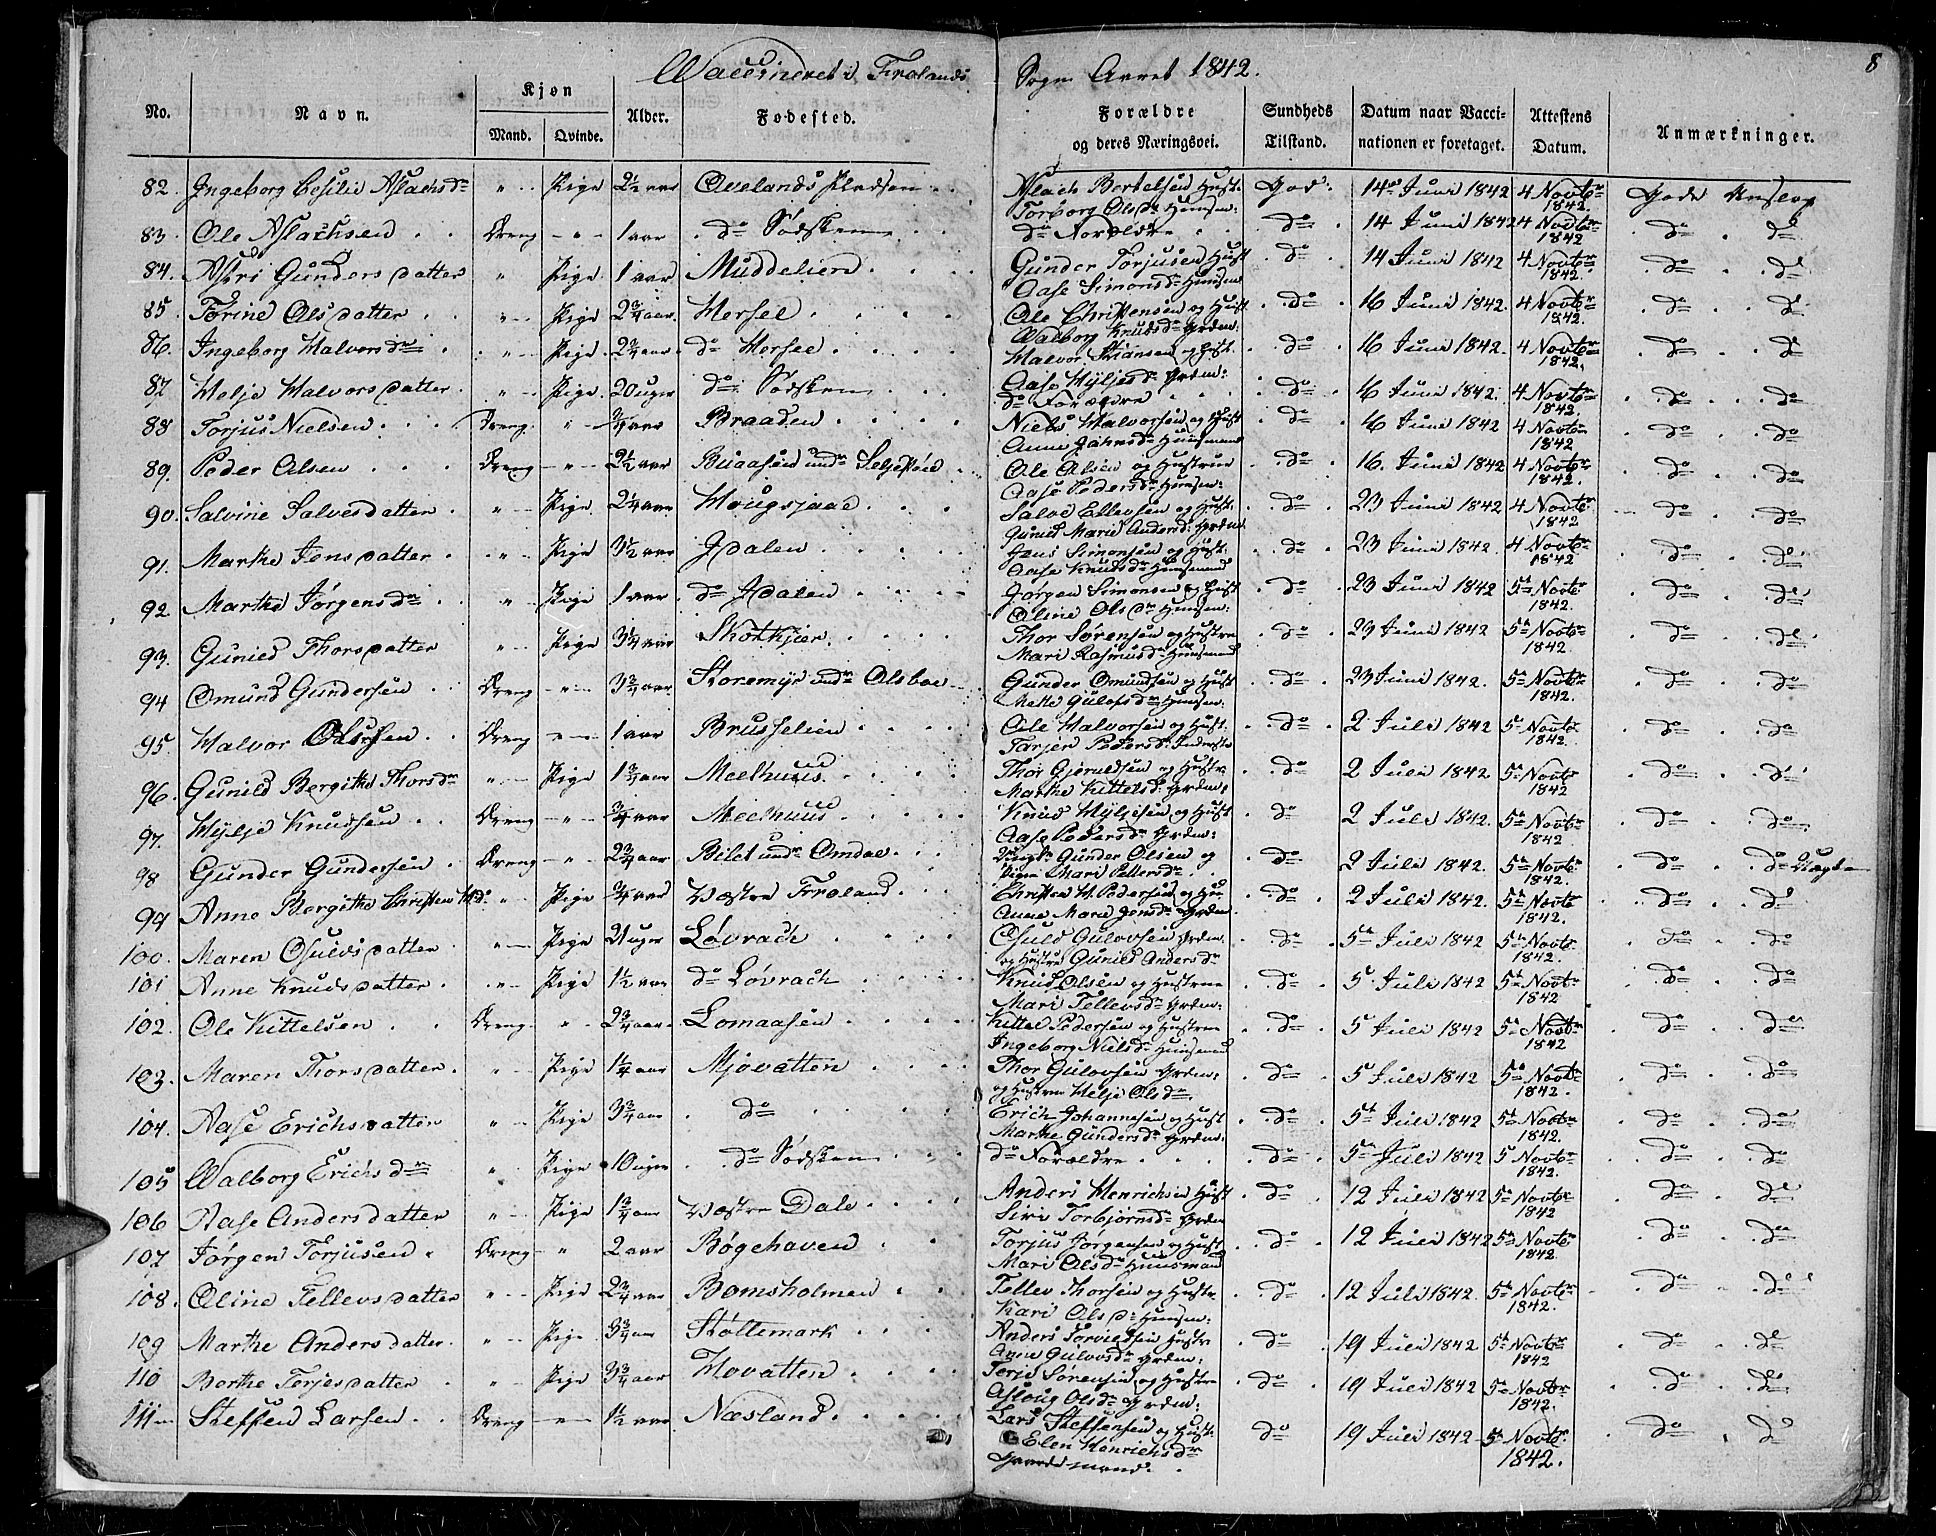 Vaccineret i Frolands Sogn Aaret 1842.
8
No. Navn. Kjøn Alder. Fødested. Forældre Sundheds Datum naar Vacci- Attestens Anmærkninger.
Mand. Qvinde. og deres Næringsvei. Tilstand. nationen er foretaget. Datum.
82. Ingeborg Cesilie Aslachsdr " Pige 2½ aar Ovelands Pladsen Aslach Bertelsen Hust. Torborg Olsdr Huusm: God: 14de Juni 1842 4 Novbr 1842. Gode
83. Ole Aslachsen Dreng " 1 aar do Sødsken do Forældre do 14 Juni 1842 4 Novbr 1842 do do
84. Astri Gundersdatter " Pige 1 aar Muddelien Gunder Torjusen Hust Aase Simonsdr Huusm do 14 Juni 1842 4 Novbr 1842. do do
85. Torine Olsdatter " Pige 2¾ aar. Hersel Ole Christensen og Hust Walborg Knudsdr Grdm: do 16 Juni 1842. 4 Novbr 1842. do do
86. Ingeborg Halvorsdr " Pige 2¾ aar do Hersel Halvor og Hust. Aase Hyljesdr Grdm: do 16 Juni 1842. 4 Novbr 1842. do do
87 Helje Halvorsdatter " Pige 20 uger do Sødsken do Forældre do 16 Juni 1842. 4 Novbr 1842. do do
88 Torjus Nielsen Dreng " ¾ aar Braaden Niels Halvorsen og Hust Anne Huusmand do 16 Juni 1842 4 Novbr 1842 do do
89. Peder Olsen Dreng " 2½ aar Buaasen undr Ole Olsen og Hustrue Aase Pedersdr Huusm: do 16. Juni 1842 4 Novbr 1842. do do
90. Salvine Salvesdatter " Pige 2¼ aar Hougsjaae Salve Ellevsen og Hust. Gunild Marie Andersdr Grdm do 23 Juni 1842 4 Novbr 1842 do do
91. Marthe Jensdatter " Pige 3½ aar Jdalen Jens Simonsen og Hust. Aase Knudsdr Huusmand do 23 Juni 1842. 4 Novbr 1842 do do
92. Marthe Jørgensdr " Pige 1 aar do Jdalen Jørgen Simonsen og Hust Oline Olsdr Huusm: do 23 Juni 1842 5te Novbr 1842. do do
93. Gunild Thorsdatter " Pige 3¼ aar Skotkjær Thor Sørensen og Hustrue Mari Rasmusdr Huusmand do 23 Juni 1842 5te Novbr 1842. do do
94 Omund Gundersen Dreng " 3¾ aar Storemyr undr Olsboe Gunder Omundsen og Hust Mette Gulofsdr Huusm. do 23 Juni 1842. 5te Novbr 1842. do do
95. Halvor Olsen Dreng " 1 aar Brusselien Ole Halvorsen og Hust. Tarjer Pedersdr do 2 Juli 1842 5te Novbr 1842. do do
96. Gunild Bergithe Thorsdr " Pige 1¾ aar Meelhuus Thor Gjeruldsen og Hustr. Marthe Kittelsdr Grdm: do 2 Juli 1842 5te Novbr 1842 do do
97. Hylje Knudsen Dreng " ¾ aar Meelhuus Knud Hyljesen og Hust Aase Pedersdr Grdm: do 2 Juli 1842. 5te Novbr 1842 do do
98 Gunder Gundersen Dreng " 2¾ aar Bilet undr Omdal Gunder Olsen og Pige Mari Pettersdr do 2 Juli 1842. 5te Novbr 1842. do do Uægte
99 Anne Bergithe Christen " Pige ¾ aar Vestre Froland Christen H. Pedersen og Hu Anne Marie Jensdr Grdm. do 2 Juli 1842. 5te Novbr 1842. do do
100. Maren Osuldsdatter " Pige 21 uger Løvrach Osuld Gulovsen Grdm: og Hustru Gunild Andersdr do 5te Juli 1842 5te Novbr 1842. do do
101 Anne Knudsdatter " Pige 1½ aar do Løvrach Knud Olsen og Hustrue Mari Tellevsdr Grdm: do 5 Juli 1842 5te Novbr 1842 do do
102. Ole Kittelsen Dreng " 2¾ aar Lomaasen Kittel Pedersen og Hustrue Ingeborg Nielsdr Huusmand do 5 Juli 1842 5te Novbr 1842 do do
103. Maren Thorsdatter " Pige 1¼ aar Mjøvatten Thor Gulovsen Grdm: og Hustrue Helje Olsdr do 5 Juli 1842 5te Novbr 1842. do do
104. Aase Erichsdatter " Pige 3¾ aar do Erich Johannesen og Hust Marthe Gundersdr Grdm: do 5te Juli 1842 5te Novbr 1842. do do
105 Walborg Erichsdr " Pige 10 uger do Sødsken do Forældre do 5te Juli 1842 5 Novbr 1842. do do
106 Aase Andersdatter " Pige 1¾ aar Vestre Dale Anders Henrichsen Hust Siri Torbjørnsdr Grdm do 12 Juli 1842 5te Novbr 1842 do do
107 Jørgen Torjusen Dreng " 2 aar Bøgehaven Torjus Jørgensen og Hust Mari Olsdr Huusmand do 12 Juli 1842 5te Novbr 1842. do do
108. Oline Tellevsdatter " Pige 2¾ aar Bomsholmen Tellev Thorsen og Hustr Kari Olsdr Huusm: do 12 Juli 1842. 5te Novbr 1842. do do
109 Marthe Andersdatter " Pige 3¾ aar Støltemark Anders Hustr Anne Gulovsdr Grdm: do 19 Juli 1842 5te Novbr 1842 do do
110 Berthe Terjesdatter " Pige 3¾ aar Hovatten Terje Sørensen og Hustrue Aslaug Olsdr Grdm: do 19 Juli 1842 5te Novbr 1842. do do
111 Steffen Larsen Dreng " 1½ aar Næsland Lars Steffensen og Hust. Elen Henrichsdr Gaardmand. do 19 Juli 1842 5te Novbr 1842. do do